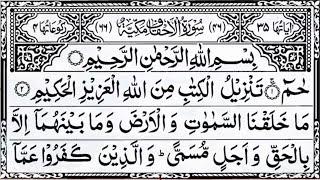 اٰيَاتُهَا ٣٥ (٤٦) سُوْرَةُ الْاَحْقَافِ مَكِّيَّةٌ (٦٦) رُكُوْعَاتُهَا ٤
بِسْمِ اللّٰهِ الرَّحْمٰنِ الرَّحِيْمِ
حٰمٓ ۚ ١ تَنْزِيْلُ الْكِتٰبِ مِنَ اللّٰهِ الْعَزِيْزِ الْحَكِيْمِ ٢
مَا خَلَقْنَا السَّمٰوٰتِ وَ الْاَرْضَ وَ مَا بَيْنَهُمَاۤ اِلَّا
بِالْحَقِّ وَ اَجَلٍ مُّسَمًّىؕ وَ الَّذِيْنَ كَفَرُوْا عَمَّاۤ